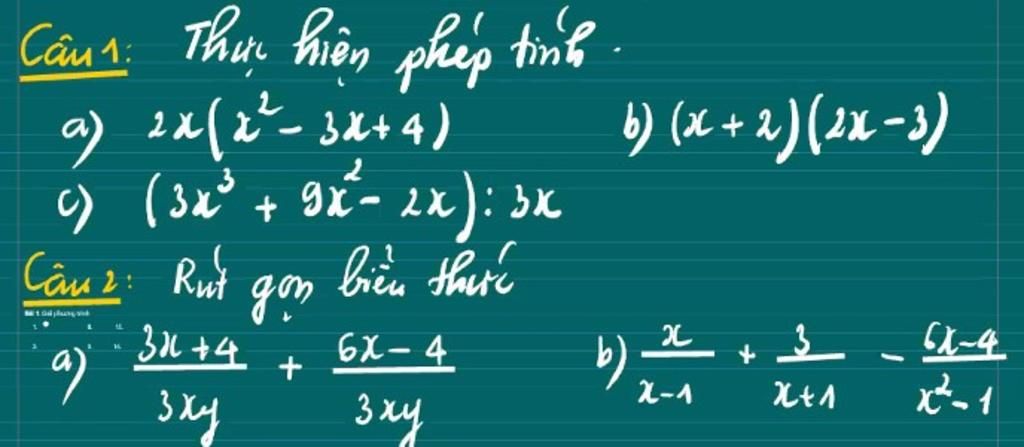 Câu 1: Thực hiện phép tính.
a) 2x(x² - 3x + 4) b) (x + 2)(2x - 3)
c) (3x³ + 9x² - 2x) : 3x
Câu 2: Rút gọn biểu thức
Bài 1. Giải phương trình
a) (3x + 4)/(3xy) + (6x - 4)/(3xy) b) x/(x - 1) + 3/(x + 1) - (6x - 4)/(x² - 1)